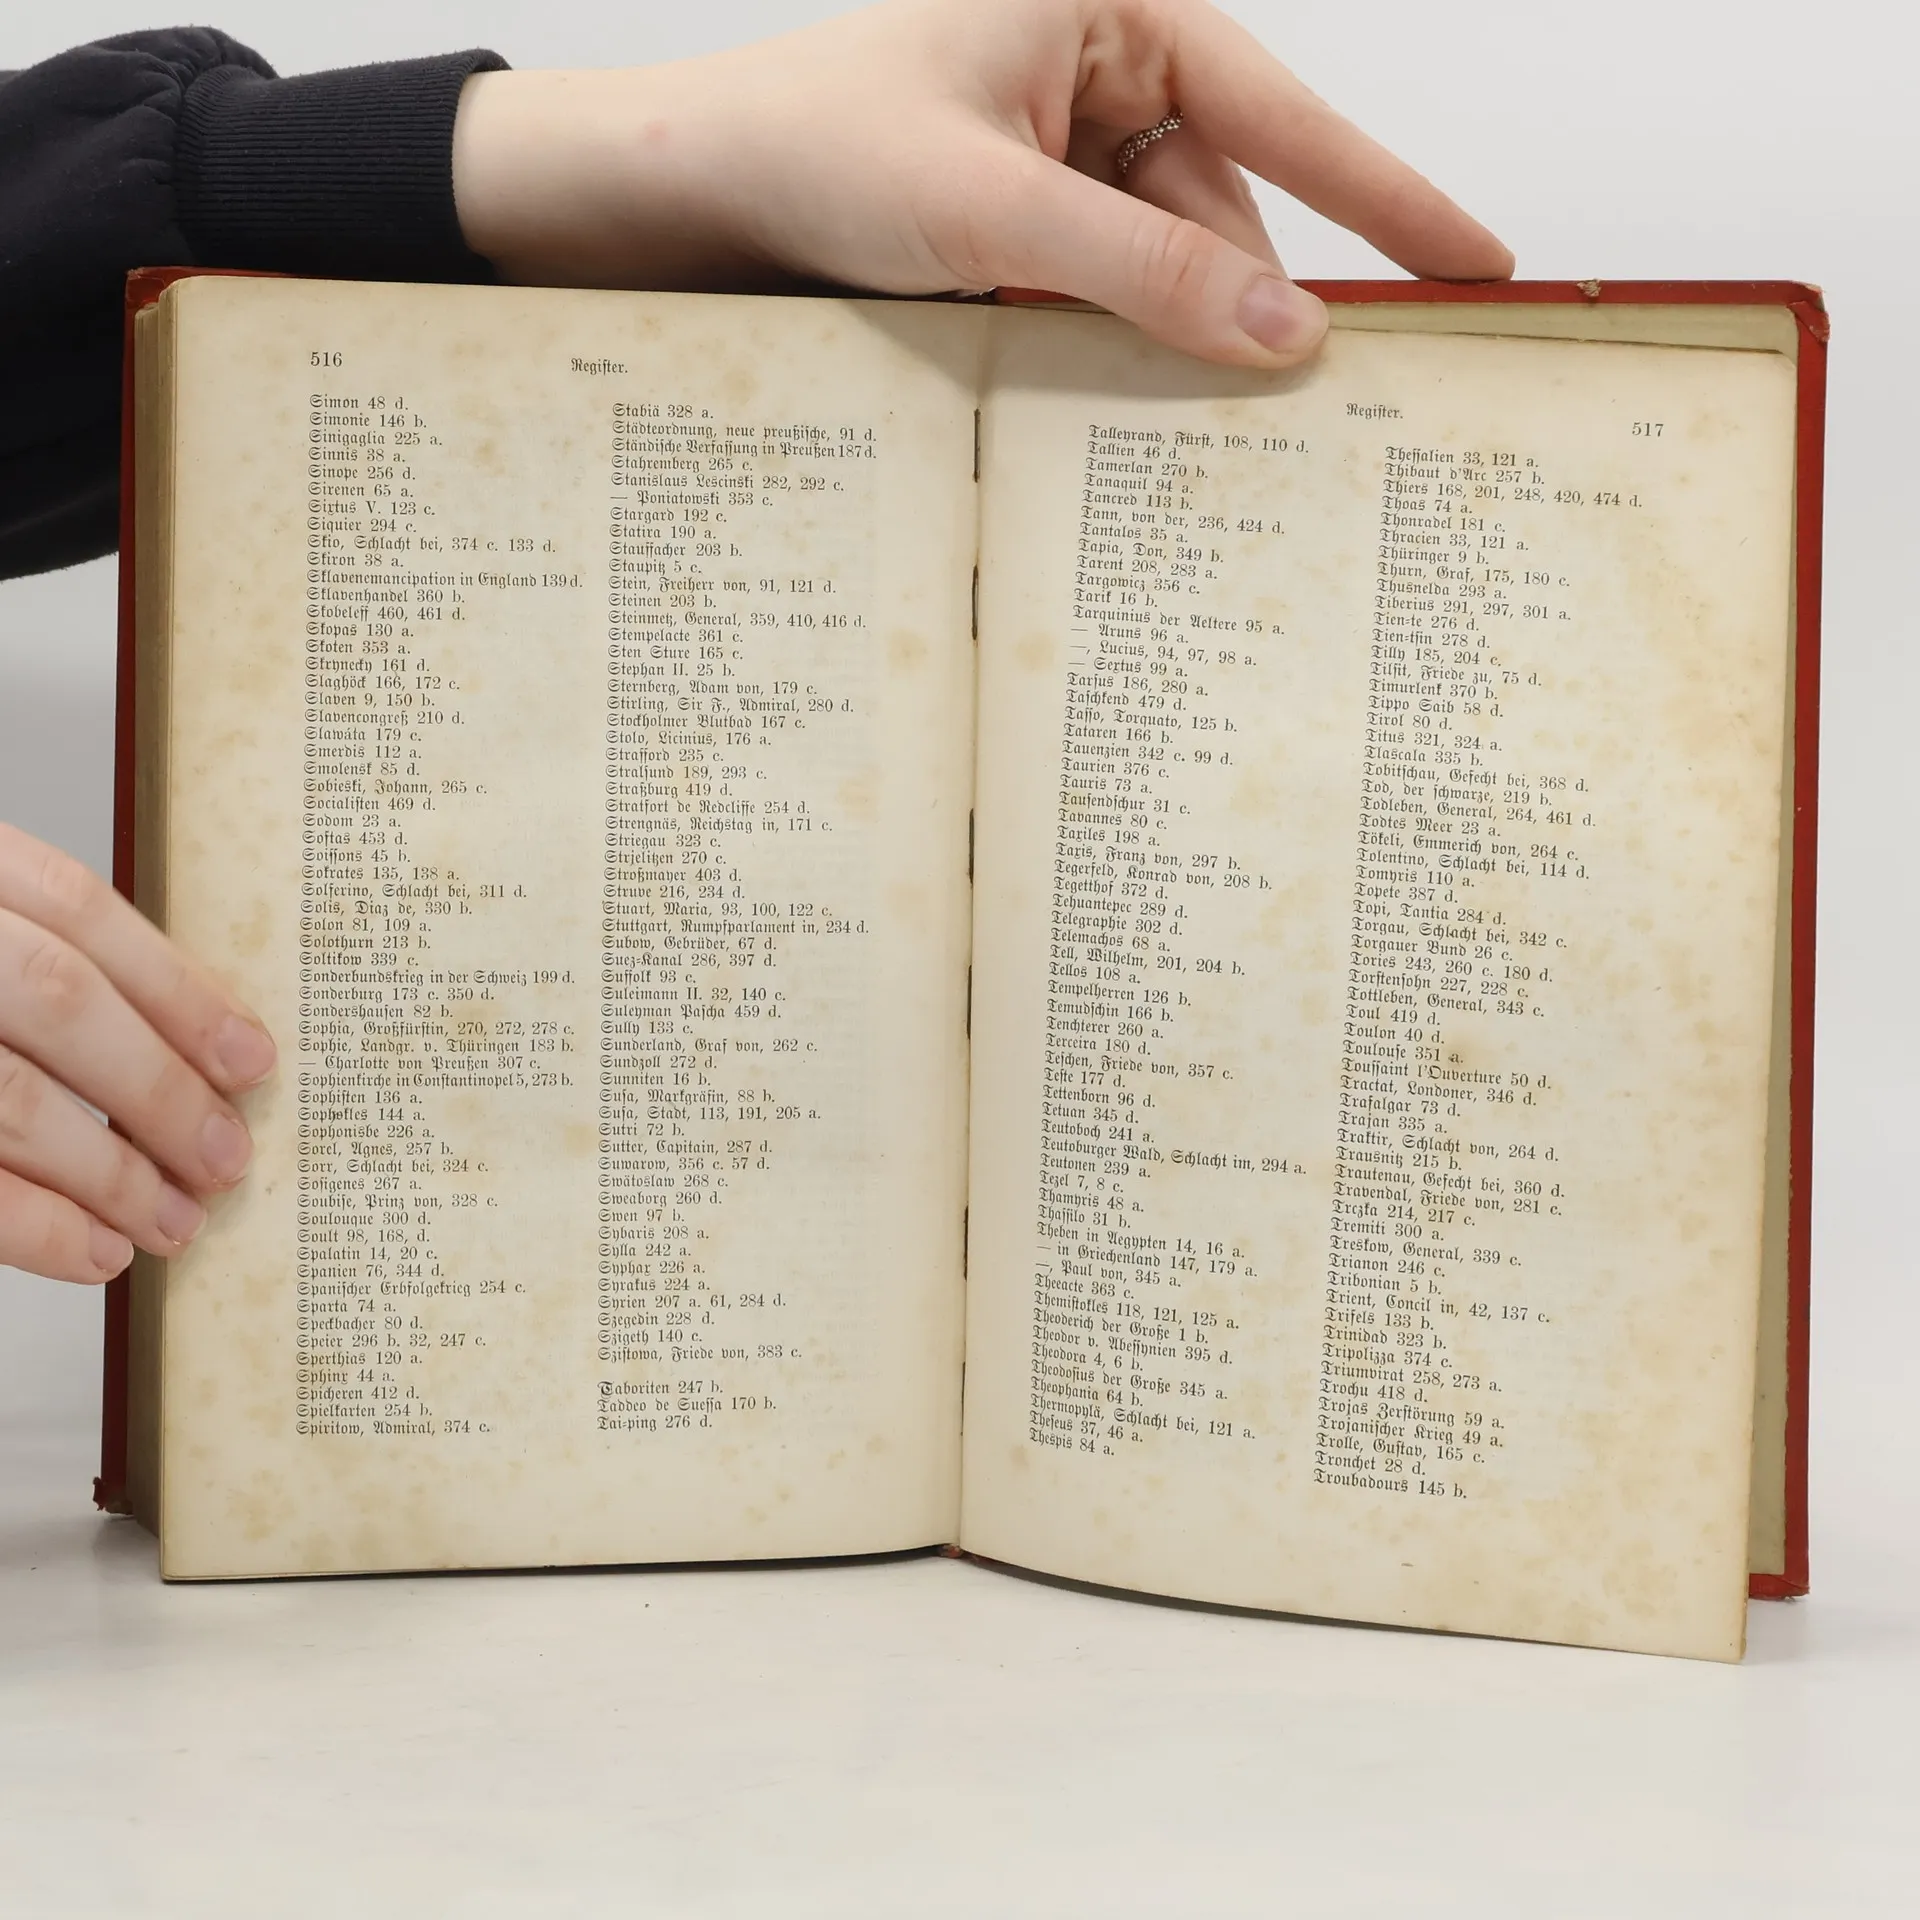 516
Regiſter.
Simon 48 d.
Simonie 146 b.
Sinigaglia 225 a.
Sinnis 38 a.
Sinope 256 d.
Sirenen 65 a.
Sixtus V. 123 c.
Siquier 294 c.
Skio, Schlacht bei, 374 c. 133 d.
Skiron 38 a.
Sklavenemancipation in England 139 d.
Sklavenhandel 360 b.
Skobeleff 460, 461 d.
Skopas 130 a.
Skoten 353 a.
Skrynecky 161 d.
Slaghöck 166, 172 c.
Slaven 9, 150 b.
Slavencongreß 210 d.
Slawáta 179 c.
Smerdis 112 a.
Smolensk 85 d.
Sobieski, Johann, 265 c.
Socialiſten 469 d.
Sodom 23 a.
Softas 453 d.
Soiſſons 45 b.
Sokrates 135, 138 a.
Solferino, Schlacht bei, 311 d.
Solis, Diaz de, 330 b.
Solon 81, 109 a.
Solothurn 213 b.
Soltikow 339 c.
Sonderbundskrieg in der Schweiz 199 d.
Sonderburg 173 c. 350 d.
Sondershauſen 82 b.
Sophia, Großfürſtin, 270, 272, 278 c.
Sophie, Landgr. v. Thüringen 183 b.
— Charlotte von Preußen 307 c.
Sophienkirche in Conſtantinopel 5, 273 b.
Sophiſten 136 a.
Sophokles 144 a.
Sophonisbe 226 a.
Sorel, Agnes, 257 b.
Sorr, Schlacht bei, 324 c.
Soſigenes 267 a.
Soubiſe, Prinz von, 328 c.
Soulouque 300 d.
Soult 98, 168, d.
Spalatin 14, 20 c.
Spanien 76, 344 d.
Spaniſcher Erbfolgekrieg 254 c.
Sparta 74 a.
Speckbacher 80 d.
Speier 296 b. 32, 247 c.
Sperthias 120 a.
Sphinx 44 a.
Spicheren 412 d.
Spielkarten 254 b.
Spiritow, Admiral, 374 c.
Stabiä 328 a.
Städteordnung, neue preußiſche, 91 d.
Ständiſche Verfaſſung in Preußen 187 d.
Stahremberg 265 c.
Stanislaus Lescinski 282, 292 c.
— Poniatowski 353 c.
Stargard 192 c.
Statira 190 a.
Stauffacher 203 b.
Staupitz 5 c.
Stein, Freiherr von, 91, 121 d.
Steinen 203 b.
Steinmetz, General, 359, 410, 416 d.
Stempelacte 361 c.
Sten Sture 165 c.
Stephan II. 25 b.
Sternberg, Adam von, 179 c.
Stirling, Sir F., Admiral, 280 d.
Stockholmer Blutbad 167 c.
Stolo, Licinius, 176 a.
Strafford 235 c.
Stralſund 189, 293 c.
Straßburg 419 d.
Stratfort de Redcliffe 254 d.
Strengnäs, Reichstag in, 171 c.
Striegau 323 c.
Strjelitzen 270 c.
Stroßmayer 403 d.
Struve 216, 234 d.
Stuart, Maria, 93, 100, 122 c.
Stuttgart, Rumpfparlament in, 234 d.
Subow, Gebrüder, 67 d.
Suez-Kanal 286, 397 d.
Suffolk 93 c.
Suleimann II. 32, 140 c.
Suleyman Paſcha 459 d.
Sully 133 c.
Sunderland, Graf von, 262 c.
Sundzoll 272 d.
Sunniten 16 b.
Suſa, Markgräfin, 88 b.
Suſa, Stadt, 113, 191, 205 a.
Sutri 72 b.
Sutter, Capitain, 287 d.
Suwarow, 356 c. 57 d.
Swätoslaw 268 c.
Sweaborg 260 d.
Swen 97 b.
Sybaris 208 a.
Sylla 242 a.
Syphax 226 a.
Syrakus 224 a.
Syrien 207 a. 61, 284 d.
Szegedin 228 d.
Szigeth 140 c.
Sziſtowa, Friede von, 383 c.
Taboriten 247 b.
Taddeo de Sueſſa 170 b.
Tai-ping 276 d.
Regiſter.
517
Talleyrand, Fürſt, 108, 110 d.
Tallien 46 d.
Tamerlan 270 b.
Tanaquil 94 a.
Tancred 113 b.
Tann, von der, 236, 424 d.
Tantalos 35 a.
Tapia, Don, 349 b.
Tarent 208, 283 a.
Targowicz 356 c.
Tarik 16 b.
Tarquinius der Aeltere 95 a.
— Aruns 96 a.
—, Lucius, 94, 97, 98 a.
— Sextus 99 a.
Tarſus 186, 280 a.
Taſchkend 479 d.
Taſſo, Torquato, 125 b.
Tataren 166 b.
Tauenzien 342 c. 99 d.
Taurien 376 c.
Tauris 73 a.
Tauſendſchur 31 c.
Tavannes 80 c.
Taxiles 198 a.
Taxis, Franz von, 297 b.
Tegerfeld, Konrad von, 208 b.
Tegetthof 372 d.
Tehuantepec 289 d.
Telegraphie 302 d.
Telemachos 68 a.
Tell, Wilhelm, 201, 204 b.
Tellos 108 a.
Tempelherren 126 b.
Temudſchin 166 b.
Tenchterer 260 a.
Terceira 180 d.
Teſchen, Friede von, 357 c.
Teſte 177 d.
Tettenborn 96 d.
Tetuan 345 d.
Teutoboch 241 a.
Teutoburger Wald, Schlacht im, 294 a.
Teutonen 239 a.
Tezel 7, 8 c.
Thamyris 48 a.
Thaſſilo 31 b.
Theben in Aegypten 14, 16 a.
— in Griechenland 147, 179 a.
—, Paul von, 345 a.
Theeacte 363 c.
Themiſtokles 118, 121, 125 a.
Theoderich der Große 1 b.
Theodor v. Abeſſynien 395 d.
Theodora 4, 6 b.
Theodoſius der Große 345 a.
Theophania 64 b.
Thermopylä, Schlacht bei, 121 a.
Theſeus 37, 46 a.
Thespis 84 a.
Theſſalien 33, 121 a.
Thibaut d'Arc 257 b.
Thiers 168, 201, 248, 420, 474 d.
Thoas 74 a.
Thonradel 181 c.
Thracien 33, 121 a.
Thüringer 9 b.
Thurn, Graf, 175, 180 c.
Thusnelda 293 a.
Tiberius 291, 297, 301 a.
Tien-te 276 d.
Tien-tſin 278 d.
Tilly 185, 204 c.
Tilſit, Friede zu, 75 d.
Timurlenk 370 b.
Tippo Saib 58 d.
Tirol 80 d.
Titus 321, 324 a.
Tlascala 335 b.
Tobitſchau, Gefecht bei, 368 d.
Tod, der ſchwarze, 219 b.
Todleben, General, 264, 461 d.
Todtes Meer 23 a.
Tökeli, Emmerich von, 264 c.
Tolentino, Schlacht bei, 114 d.
Tomyris 110 a.
Topete 387 d.
Topi, Tantia 284 d.
Torgau, Schlacht bei, 342 c.
Torgauer Bund 26 c.
Tories 243, 260 c. 180 d.
Torſtenſohn 227, 228 c.
Tottleben, General, 343 c.
Toul 419 d.
Toulon 40 d.
Toulouſe 351 a.
Touſſaint l'Ouverture 50 d.
Tractat, Londoner, 346 d.
Trafalgar 73 d.
Trajan 335 a.
Traktir, Schlacht von, 264 d.
Trausnitz 215 b.
Trautenau, Gefecht bei, 360 d.
Travendal, Friede von, 281 c.
Trczka 214, 217 c.
Tremiti 300 a.
Treskow, General, 339 c.
Trianon 246 c.
Tribonian 5 b.
Trient, Concil in, 42, 137 c.
Trifels 133 b.
Trinidad 323 b.
Tripolizza 374 c.
Triumvirat 258, 273 a.
Trochu 418 d.
Trojas Zerſtörung 59 a.
Trojaniſcher Krieg 49 a.
Trolle, Guſtav, 165 c.
Tronchet 28 d.
Troubadours 145 b.